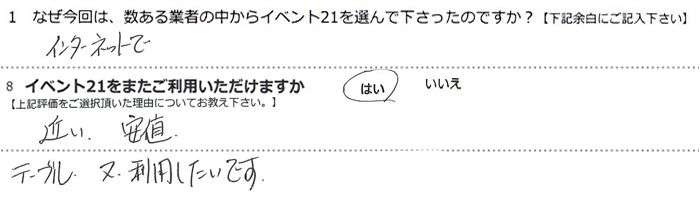 1 なぜ今回は、数ある業者の中からイベント21を選んで下さったのですか？【下記余白にご記入下さい】
インターネットで
8 イベント21をまたご利用いただけますか はい いいえ
【上記評価をご選択頂いた理由についてお教え下さい。】
近い、安値.
テーブル. 又. 利用したいです.